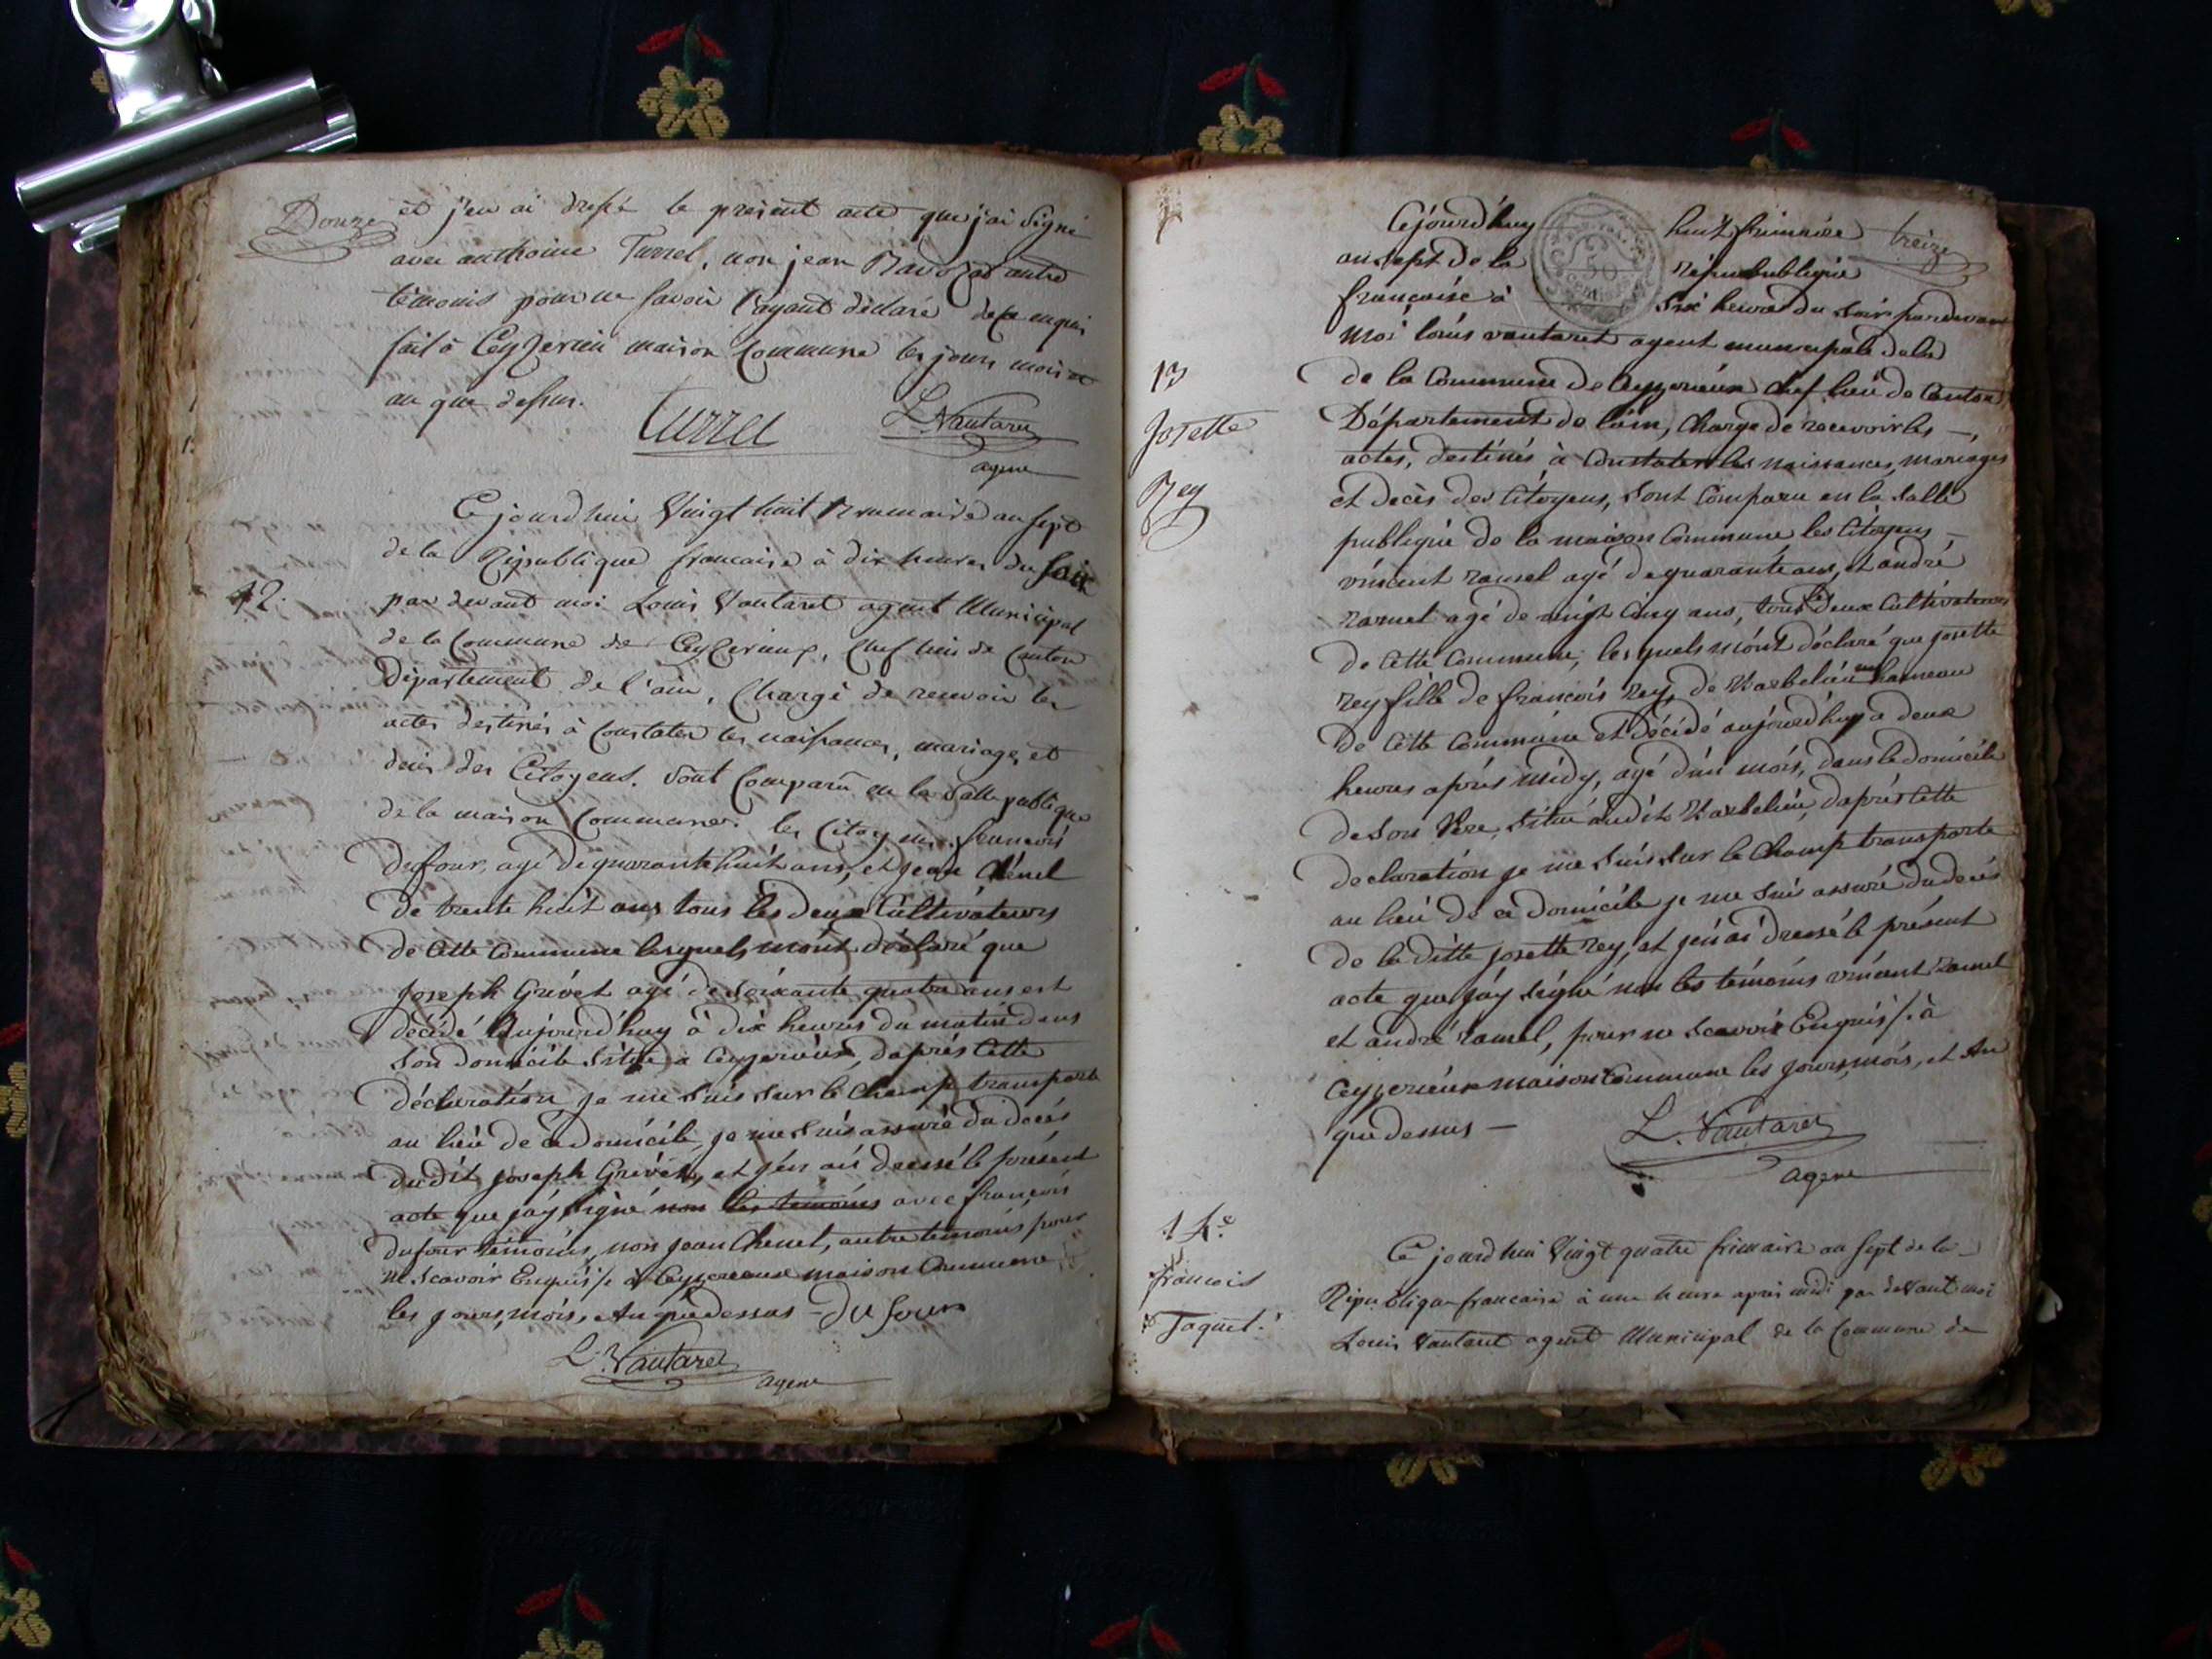 Douze
et j'en ai dressé le présent acte que j'ai signé
avec anthoine Turrel, non jean Ravo autre
témoins pour ne savoir l'ayant déclaré de ce enquis
fait à Ceyzerieu maison Commune les jours mois et
an que dessus.
Turrel L. Vautaret
agent
Ce jourd'hui Vingt huit Brumaire an sept
de la République francaise à dix heures du Soir
12.
par devant moi Louis Vautaret agent Municipal
de la Commune de Ceyzerieux, Chef lieu de Canton
Département de l'ain, Chargé de recevoir les
actes destinés à Constater les naissances, mariages et
décès des Citoyens. Sont Comparu en la Salle publique
de la maison Commune les Citoyens francois
dufour, agé de quarante huit ans, et jean Chenel
de trente huit ans tous les deux Cultivateurs
de Cette Commune lesquels m'ont déclaré que
Joseph Grivet agé de Soixante quatre ans est
décédé Aujourd'huy à dix heures du matin dans
Son domicile Situé à Ceyzerieux, daprés Cette
déclaration je me suis sur le Champ transporté
au lieu de ce domicile, je me suis assuré du decés
dudit joseph Grivet, et jen ais dressé le présent
acte que jáy signé non les temoins avec françois
dufour témoins, non jean Chenel, autre temoins, pour
ne Scavoir Enquis /. à Ceyzerieux maison Commune
les jours, mois, et An que dessus - Dufour
L. Vautaret
agent
Cejourd'huy huit frimaire treize
an sept de la république
française à Six heures du Soir pardevant
Moi louis vautaret agent municipale dela
13
de la Commune de Ceyzerieux Chef lieu de Canton
Josette
Département de l'ain, Chargé de recevoir les -
actes, destinés à Constater les naissances, mariages
Rey
et Decès des Citoyens, Sont Comparu en la Salle
publique de la maison Commune les Citoyens -
vincent ramel agé de quarante ans, et andré
ramel agé de vingt Cinq ans, tous les deux Cultivateurs
De Cette Commune, les quels m'ont déclaré que josette
rey fille de francois rey, de Marbelieu hameau
De Cette Commune est Décédé aujourd'huy a deux
heures aprés midy, agé d'un mois, dans le domicile
de Son Pere, Situé audit Marbelieu, daprés Cette
declaration je me Suis Sur le Champ transporté
au lieu de ce domicile je me Suis assuré du decés
de la ditte josette rey, et jen ai dressé le présent
acte que jáy Signé non les témoins vincent ramel
et andré ramel, pour ne Scavoir Enquis /. à
Ceyzerieux maison Commune les jours, mois, et An
que dessus -
L. Vautaret
agent
14.e
Ce jourd'hui Vingt quatre frimaire an Sept de la
francois
République francaise à une heure apres midi par devant moi
Jaquet.
Louis Vautaret agent Municipal de la Commune de